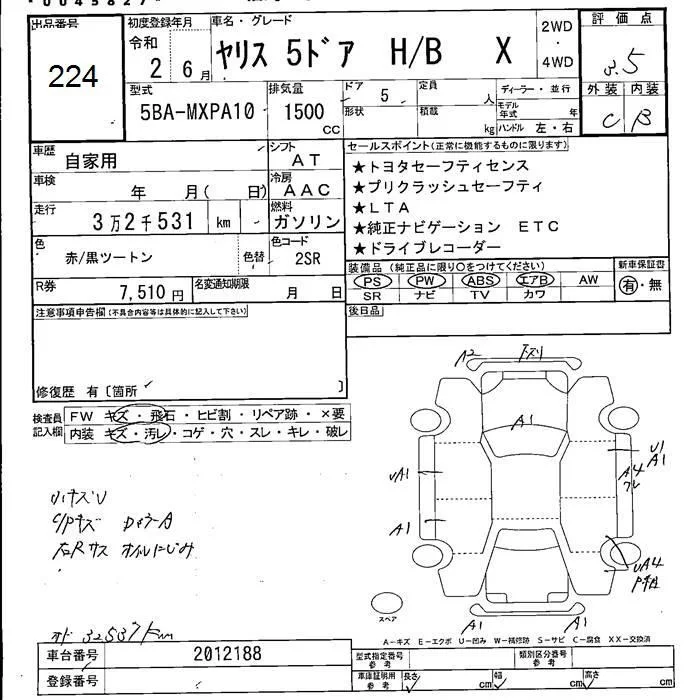 出品番号
224
初度登録年月
令和
2 6月
車名・グレード
ヤリス 5ドア H/B X
2WD
・
4WD
評価点
3.5
外装 内装
C B
型式
5BA-MXPA10
排気量
1500
CC
ドア 5
形状
定員
人
積載
kg
ディーラー・並行
モデル年式 年
ハンドル 左・右
車歴 自家用
シフト
AT
車検
年 月( 日)
冷房
AAC
走行
3万2千531 km
燃料
ガソリン
色
赤/黒ツートン
色替
色コード
2SR
R券
7,510 円
名変通知期限
月 日
セールスポイント(正常に機能するものに限ります)
★トヨタセーフティセンス
★プリクラッシュセーフティ
★LTA
★純正ナビゲーション ETC
★ドライブレコーダー
装備品 (純正品に限り○をつけてください)
PS PW ABS エアB AW
SR ナビ TV カワ
新車保証書
有・無
後日品
注意事項申告欄(不具合内容等は具体的に記入して下さい)
修復歴 有〔箇所 〕
検査員記入欄
FW キズ・飛石・ヒビ割・リペア跡・×要
内装 キズ・汚レ・コゲ・穴・スレ・キレ・破レ
小キズU
C/Pキズ
右Rサス オイルにじみ
オド 32537km
A2 下スリ
A1
UA1
A1
U1
A1
A4
ワレ
UA4
A1 A1
スペア
A-キズ E-エクボ U-凹み W-補修跡 S-サビ C-腐食 XX-交換済
車台番号 2012188
登録番号
型式指定番号
参考
類別区分番号
参考
車庫証明用
参考
長さ cm 幅 cm 高さ cm